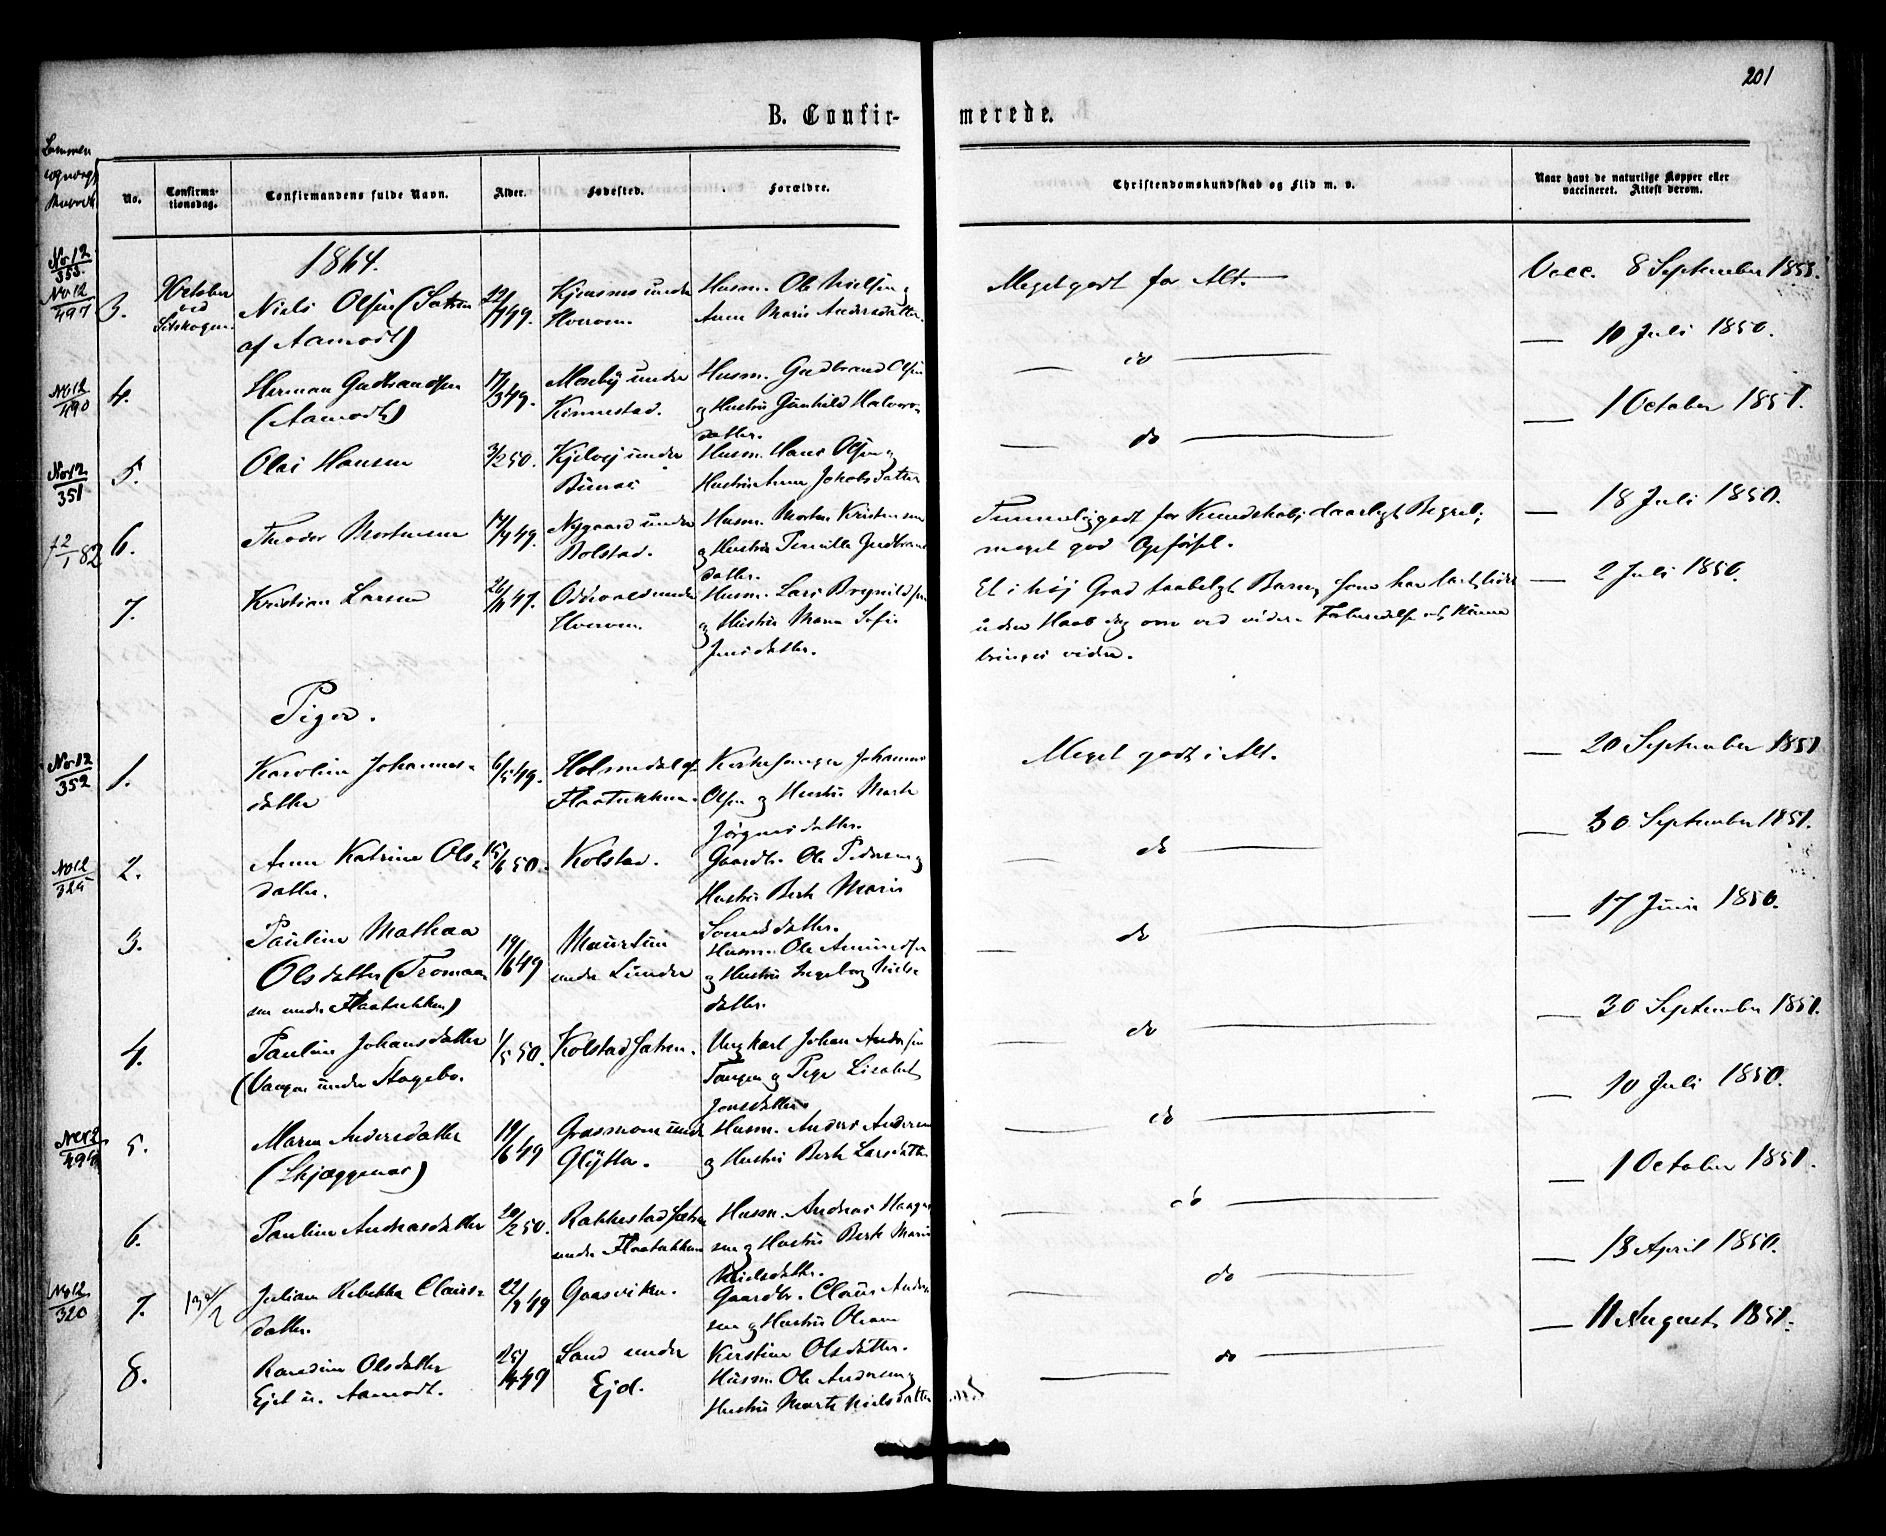 201
B. Confir- merede.
No.
Confirma-
tionsdag.
Confirmandens fulde Navn.
Alder.
Fødested.
Forældre.
Christendomskundskab og Flid m. v.
Naar havt de naturlige Kopper eller
vaccineret. Attest derom.
1864.
No 12
353
No 12
497
3.
October
ved
Setskogen.
Niels Olsen (Sætren
af Aamodt)
22/7 49.
under
Husm. Ole Nielsen og
Anne Marie Andersdatter.
Meget godt for Alt.
Vacc. 8 September 1851.
No 12
490
4.
Herman Gudbrandsen
(Aamodt)
17/3 49.
Moseby under
Kinnestad.
Husm. Gudbrand Olsen
og Hustru Gunhild Halvors-
datter.
— do —
— 10 Juli 1850.
No 12
351
5.
Olai Hansen
3/2 50.
under
Husm. Hans Olsen og
Hustru Anne Jakobsdatter
— do —
— 1 October 1851.
f 2/1 82
6.
Theodor Mortensen
17/9 49.
Nygaard under
Bolstad.
Husm. Morten Kristensen
og Hustru Pernille Gudbrands
datter.
Temmelig godt for Kundskab; daarligt Begreb;
meget god Opførsel.
— 18 Juli 1850.
7.
Kristian Larsen
Oddevald under
Husm. Lars Brynildsen
og Hustru Maren Sofie
Jensdatter.
Et i høj Grad taabeligt Barn, som har
uden Haab dog om ved videre Forberedelse at kunne
bringes videre.
— 2 Juli 1850.
Piger.
No 12
352
1.
Karoline Johannes-
datter
6/5 49.
Holmedal af
Flaatukken.
Kirkesanger Johannes
Olsen og Hustru Marte
Jørgensdatter.
Meget godt i Alt.
— 20 September 1851
No 12
325
2.
Anne Katrine Ols-
datter.
15/6 50.
Kolstad.
Gaardbr. Ole Pedersen og
Hustru Berte Marie
— do —
— 30 September 1851.
3.
Pauline Mathea
Olsdatter (Tromaa-
sen under Flaatukken)
19/6 49
under Lunder
Husm. Ole Amundsen
og Hustru Ingeborg Niels-
datter.
— do —
— 17 Juni 1850.
4.
Pauline Johansdatter
(Vangen under Skogebo.
1/5 50.
Kolstadsætren.
Ungkarl Johan Andersen
Tangen og Pige Lisabet
Jonsdatter
— do —
— 30 September 1851.
No 12
494
5.
Maren Andersdatter
(Skjæggenæs)
19/6 49
Grasmoen under
Glytta.
Husm. Anders Andersen
og Hustru Berte Larsdatter
— do —
— 10 Juli 1850.
6.
Pauline Andreasdatter
20/2 50.
Rakkestadsætren
under Flaatukken
Husm. Andreas Haagen-
sen og Hustru Berte Marie
Nielsdatter.
— do —
— 1 October 1851.
No 12
320
7.
Juliane Rebekka Claus-
datter.
22/9 49
Gaasviken.
Gaardbr. Claus Ander-
sen og Hustru Oleane
Kerstine Olsdatter.
— do —
— 13 April 1850.
8.
Randine Olsdatter
Ejet u. Aamodt.
Sand under
Ejd.
Husm. Ole Andersen og
Hustru Marte Nielsdatter
— do —
— 11 August 1851.